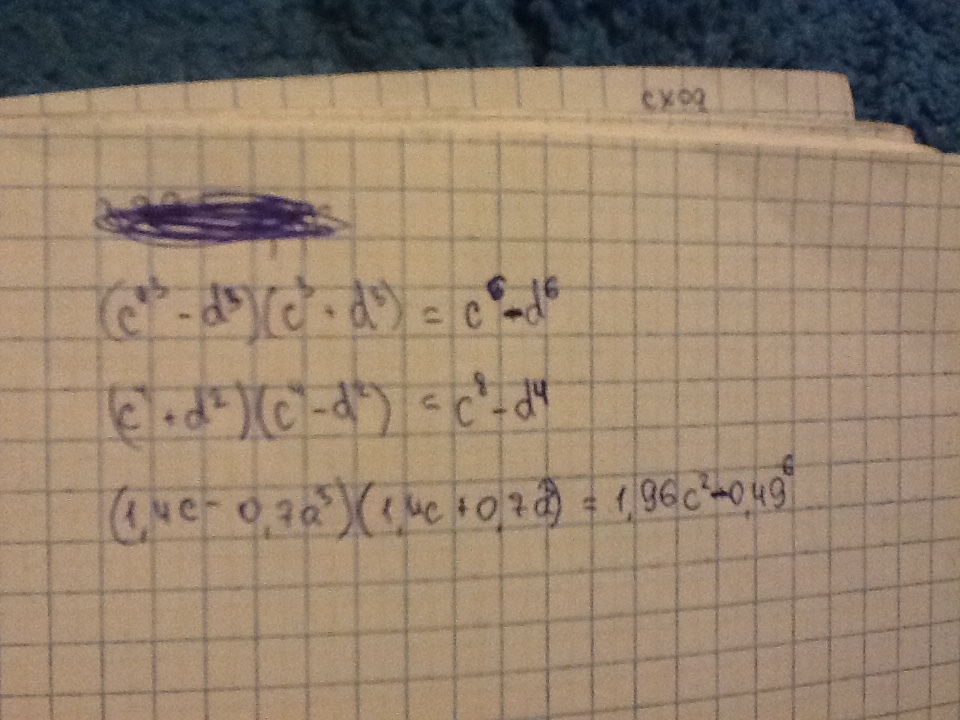 сход
(c³ - d³)(c³ + d³) = c⁶ - d⁶
(c⁴ + d²)(c⁴ - d²) = c⁸ - d⁴
(1,4c - 0,7a³)(1,4c + 0,7a³) = 1,96c² - 0,49⁶